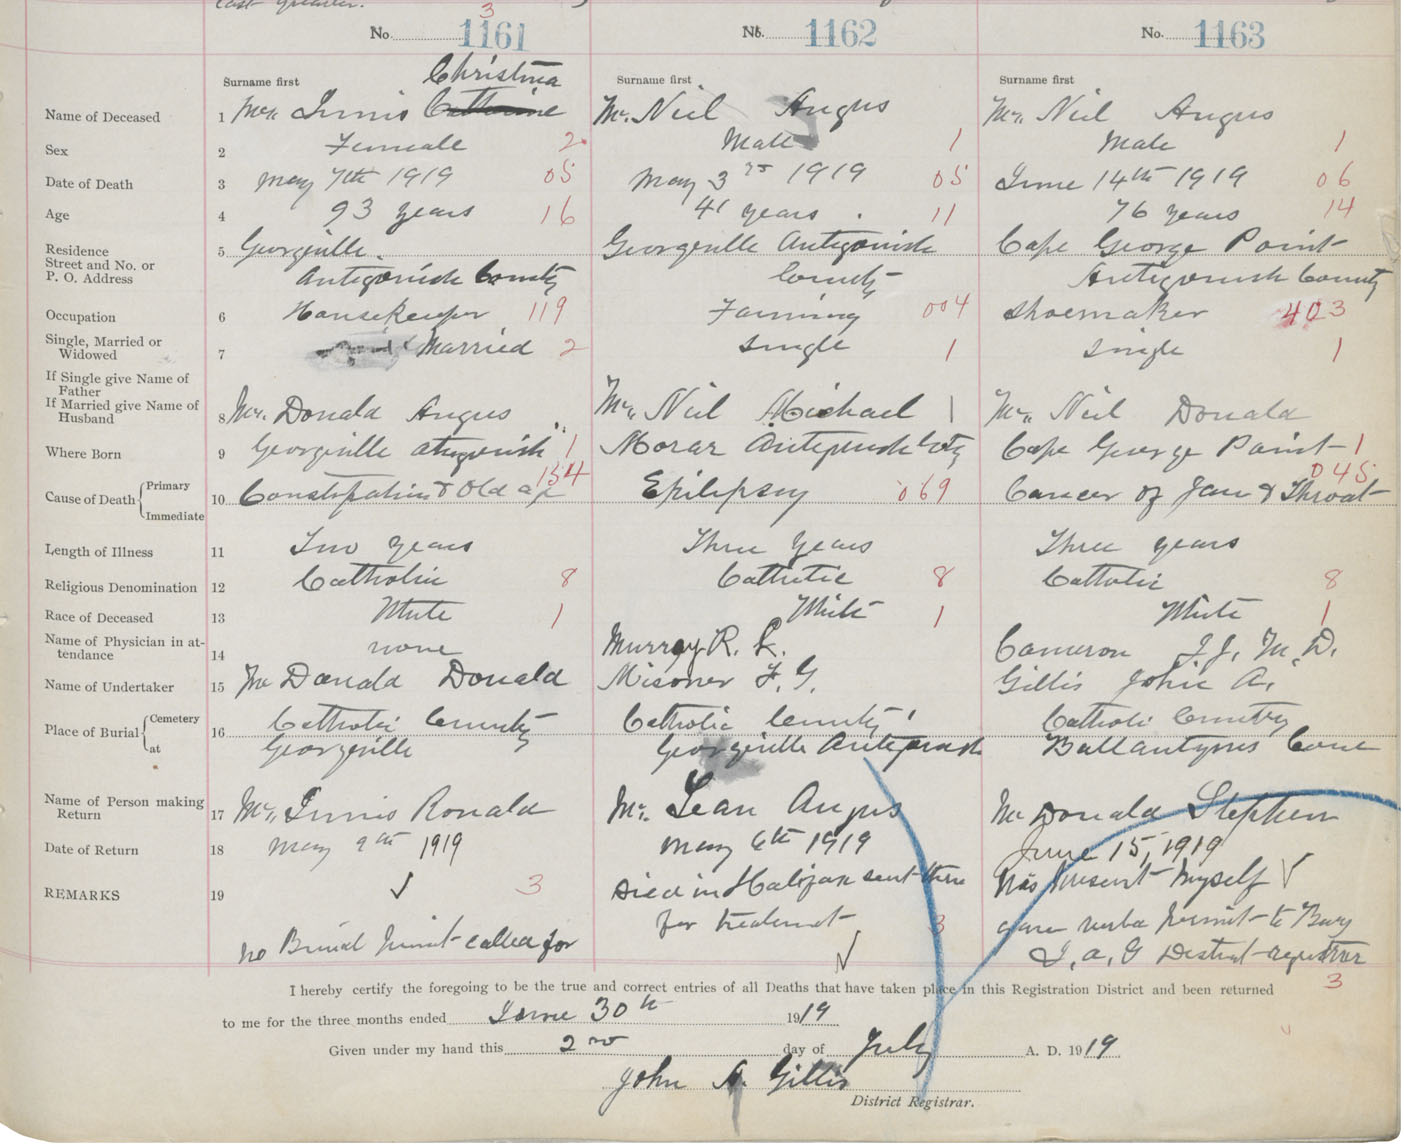 last quarter.
3
No. 1161 No. 1162 No. 1163
Surname first Surname first Surname first
Christina
Name of Deceased 1 Mcc Innis Catherine Mc. Neil Angus Mcc Neil Angus
Sex 2 Female 2 Male 1 Male 1
Date of Death 3 May 7th 1919 05 May 3rd 1919 05 June 14th 1919 06
Age 4 93 years 16 41 years . 11 76 years 14
Residence
Street and No. or
P. O. Address
5 Georgeville. Georgeville Antigonish Cape George Point
Antigonish County County Antigonish County
Occupation 6 Housekeeper 119 Farming 004 Shoemaker 403
Single, Married or
Widowed
7 Married 2 Single 1 Single 1
If Single give Name of
Father
If Married give Name of
Husband
8 Mc. Donald Angus Mcc Neil Michael 1 Mcc Neil Donald
Where Born 9 Georgeville Antigonish 1 Morar Antigonish Coty Cape George Point 1
154 045
Cause of Death { Primary Immediate 10 Constipation & Old age Epilepsy 069 Cancer of Jaw & Throat
Length of Illness 11 Two years Three Years Three years
Religious Denomination 12 Catholic 8 Catholic 8 Catholic 8
Race of Deceased 13 White 1 White 1 White 1
Name of Physician in at-
tendance
14 none Murray R. K. Cameron J. J. M. D.
Name of Undertaker 15 Mc Donald Donald Misener F. G. Gillis John A.
Place of Burial { Cemetery at 16 Catholic Cemetry Catholic Cemetry Catholic Cemetry
Georgeville Georgeville Antigonish Ballantynes Cove
Name of Person making
Return
17 Mcc Innis Ronald Mc. Lean Angus Mc Donald Stephen
Date of Return 18 May 9th 1919 May 6th 1919 June 15, 1919
REMARKS 19 ✓ 3 Died in Halifax sent there Was present myself ✓
for treatment 3 gave verbal permit to Bury
no Burial Permit called for ✓ J. A. G District registrar
3
I hereby certify the foregoing to be the true and correct entries of all Deaths that have taken place in this Registration District and been returned
to me for the three months ended June 30th 1919
Given under my hand this 2nd day of July A. D. 1919
John A. Gillis
District Registrar.